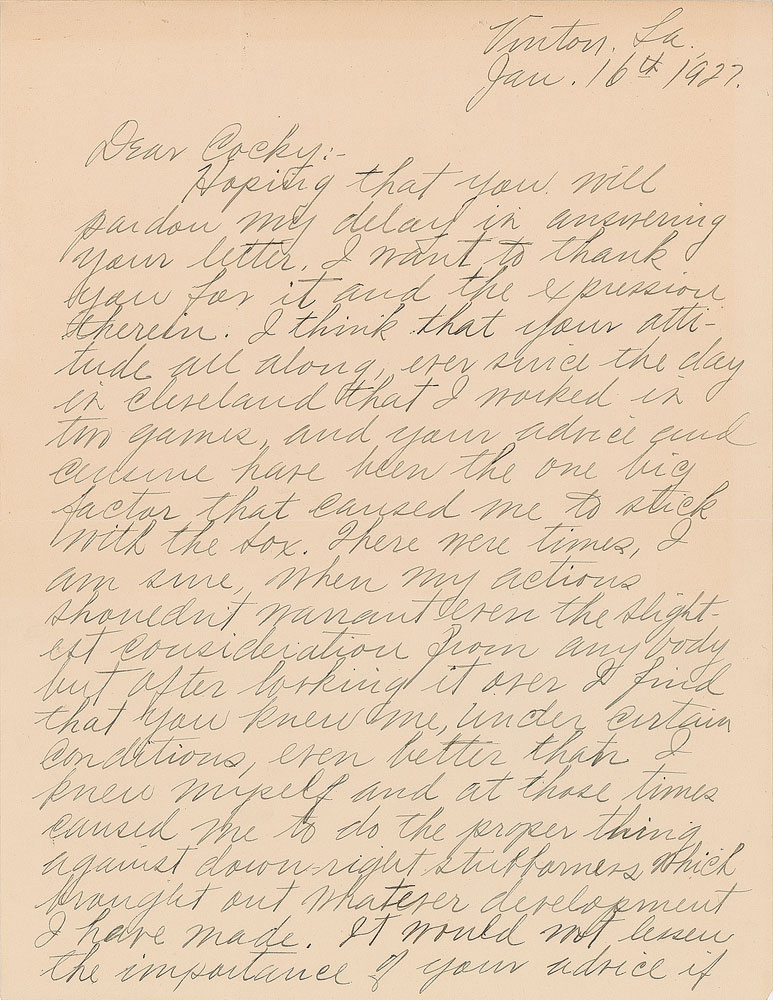 Vinton, La.
Jan. 16th 1927.
Dear Cocky:-
Hoping that you will
pardon my delay in answering
your letter, I want to thank
you for it and the expression
therein. I think that your atti-
tude all along, ever since the day
in Cleveland that I worked in
two games, and your advice and
censure have been the one big
factor that caused me to stick
with the Sox. There were times, I
am sure, when my actions
shouldn't warrant even the slight-
est consideration from anybody
but after looking it over I find
that you knew me, under certain
conditions, even better than I
knew myself and at those times
caused me to do the proper thing
against down-right stubborness, which
brought out whatever development
I have made. It would not lessen
the importance of your advice if